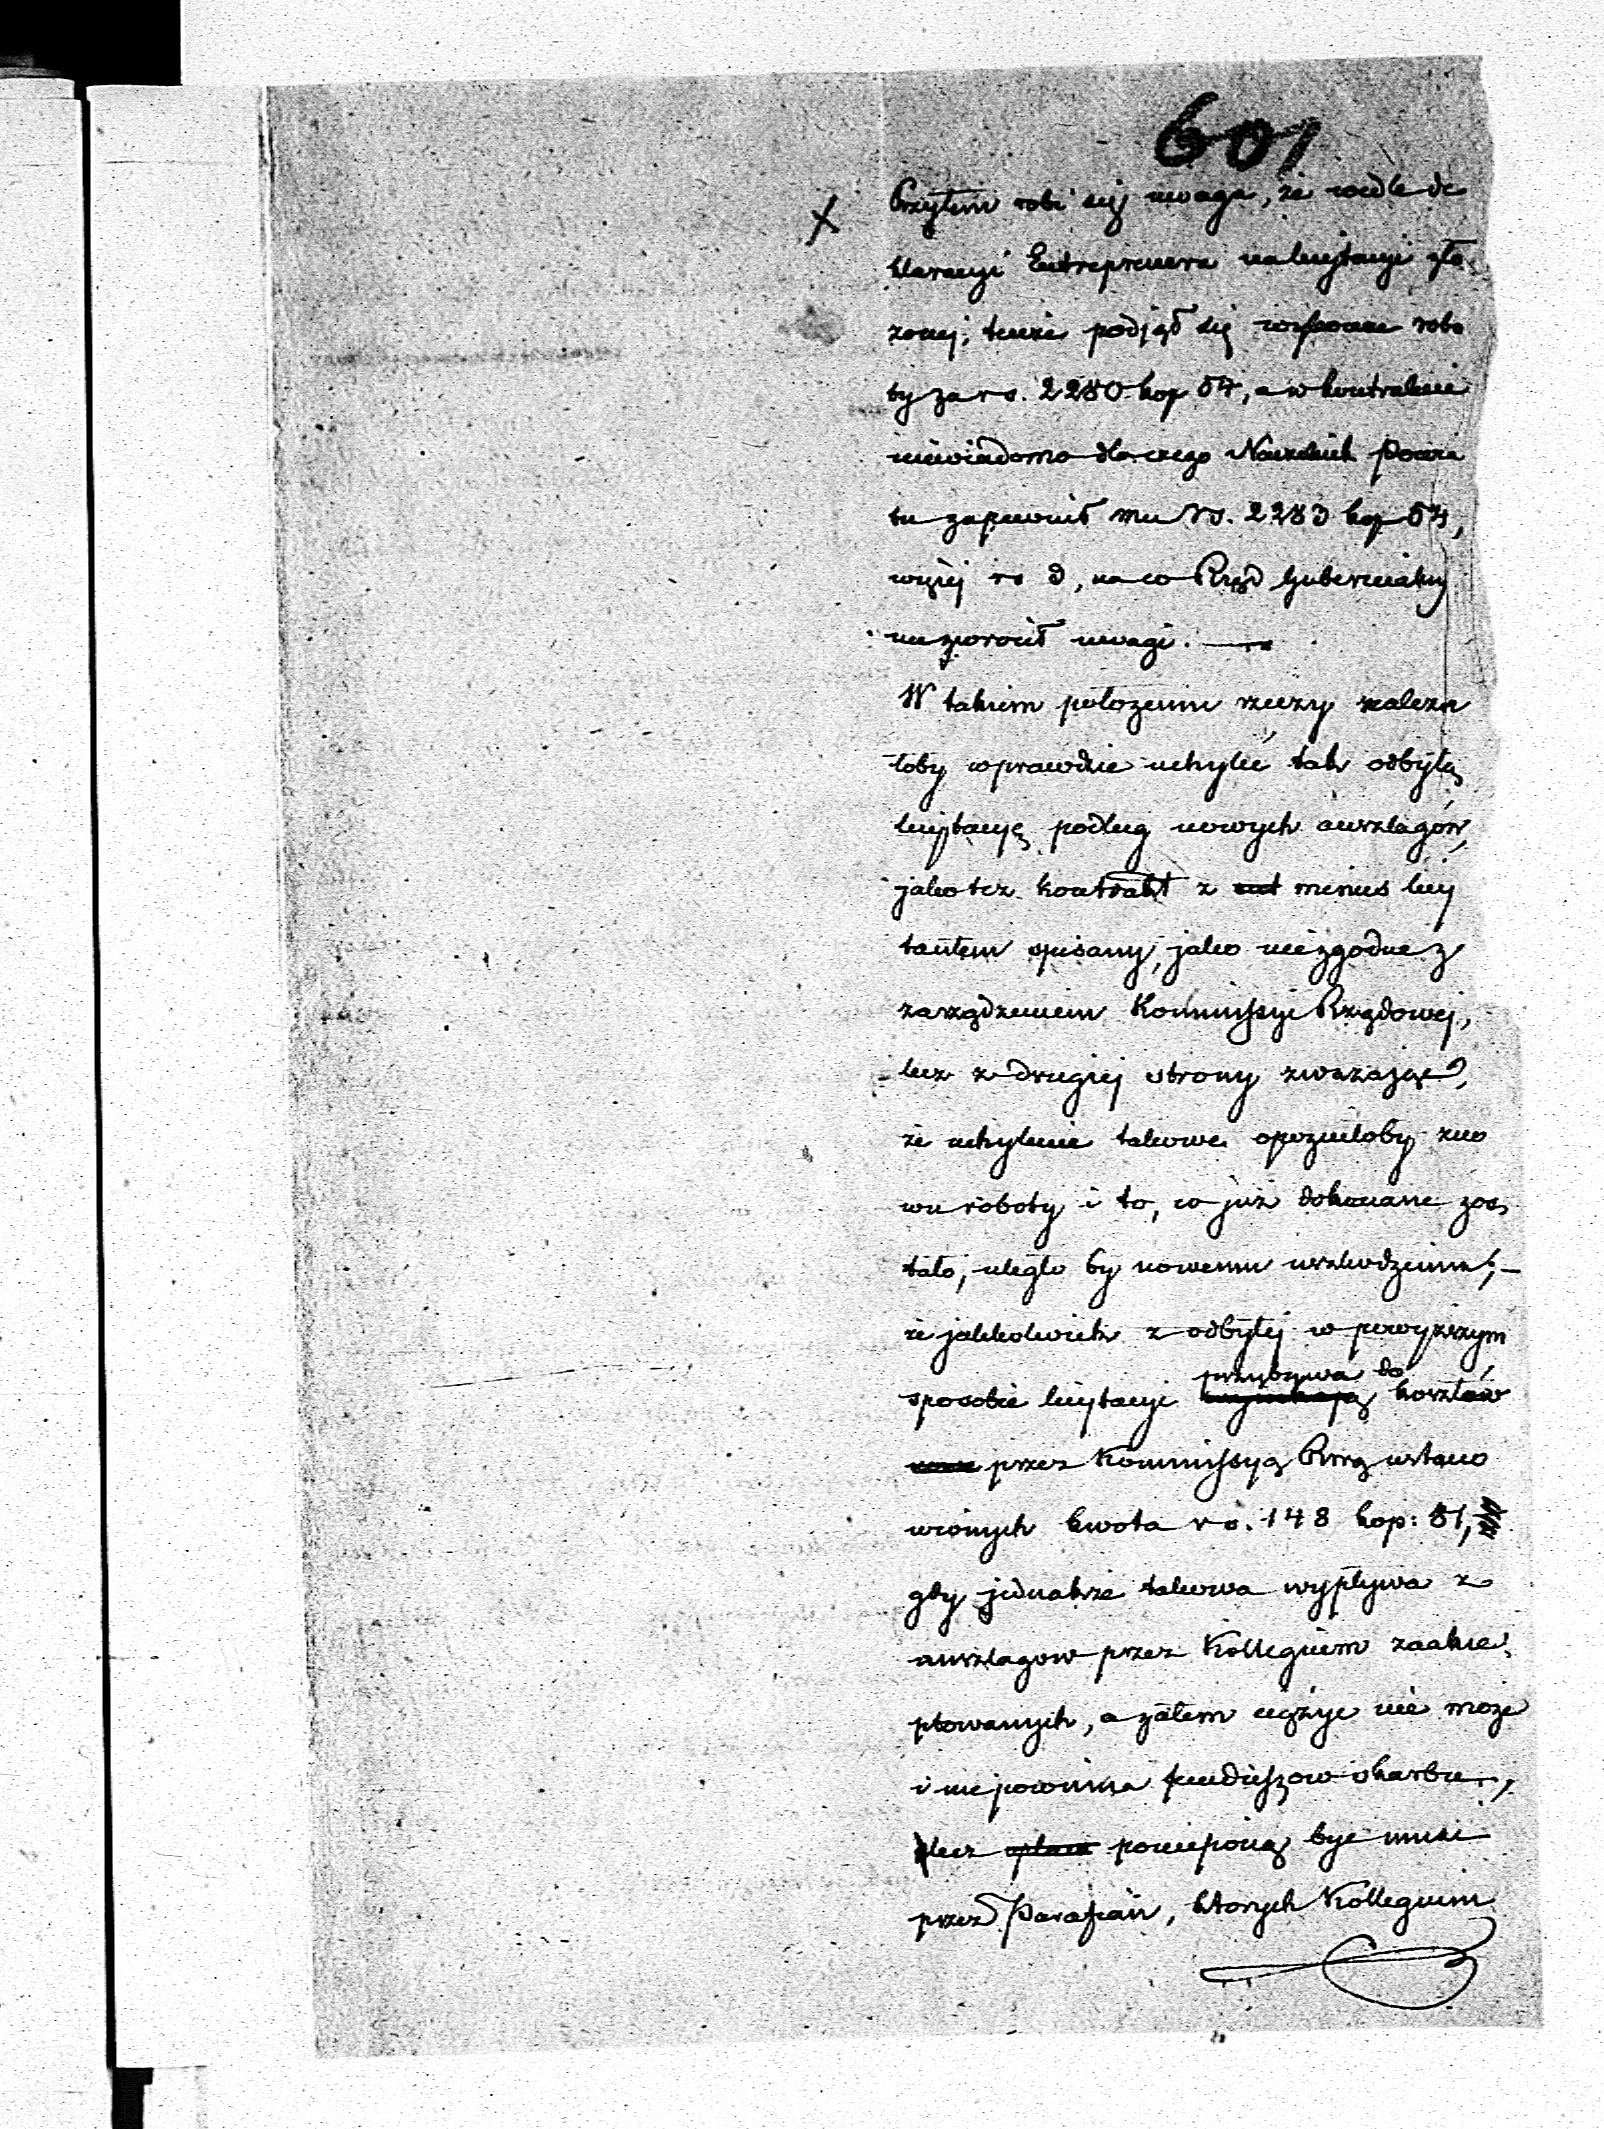 601
X Przytem robi się uwaga, że wedle de
klaracyi Entreprenera na licytacyi zło
żonej, tenże podjął się wykonać robo
ty za rs. 2280 kop 54, a w kontrakcie
niewiadomo dla czego Naczelnik Powia
tu zapewnił mu rs. 2283 kop 54,
wyżej rs 3, na co Rząd Gubernialny
nie zwrócił uwagi. —
W takiem położeniu rzeczy należa
łoby wprawdzie uchylić tak odbytą
licytacyę podług nowych anszlagów,
jako też kontrakt z minus licy
tantem spisany, jako niezgodne z
zarządzeniem Kommissyi Rządowej,
lecz z drugiej strony zważając,
że uchylenie takowe opoźniłoby zno
wu roboty i to, co już dokonane zos
tało, uległo by nowemu uszkodzeniu; —
że jakkolwiek z odbytej w powyższym
sposobie licytacyi przybywa do kosztów
przez Kommissyą Rząą ustano
wionych kwota rs. 148 kop: 51,
gdy jednakże takowa wypływa z
anszlagow przez Kollegium zaakce
ptowanych, a zatem ciężyc nie może
i nie powinna funduszow skarbu,
lecz poniesioną byc musi
przez Parafian, ktorych Kollegium